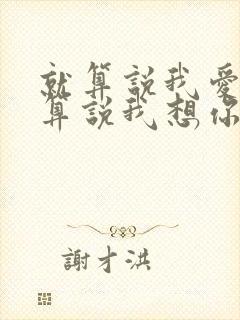 就算說我愛
算說我想你
謝才洪